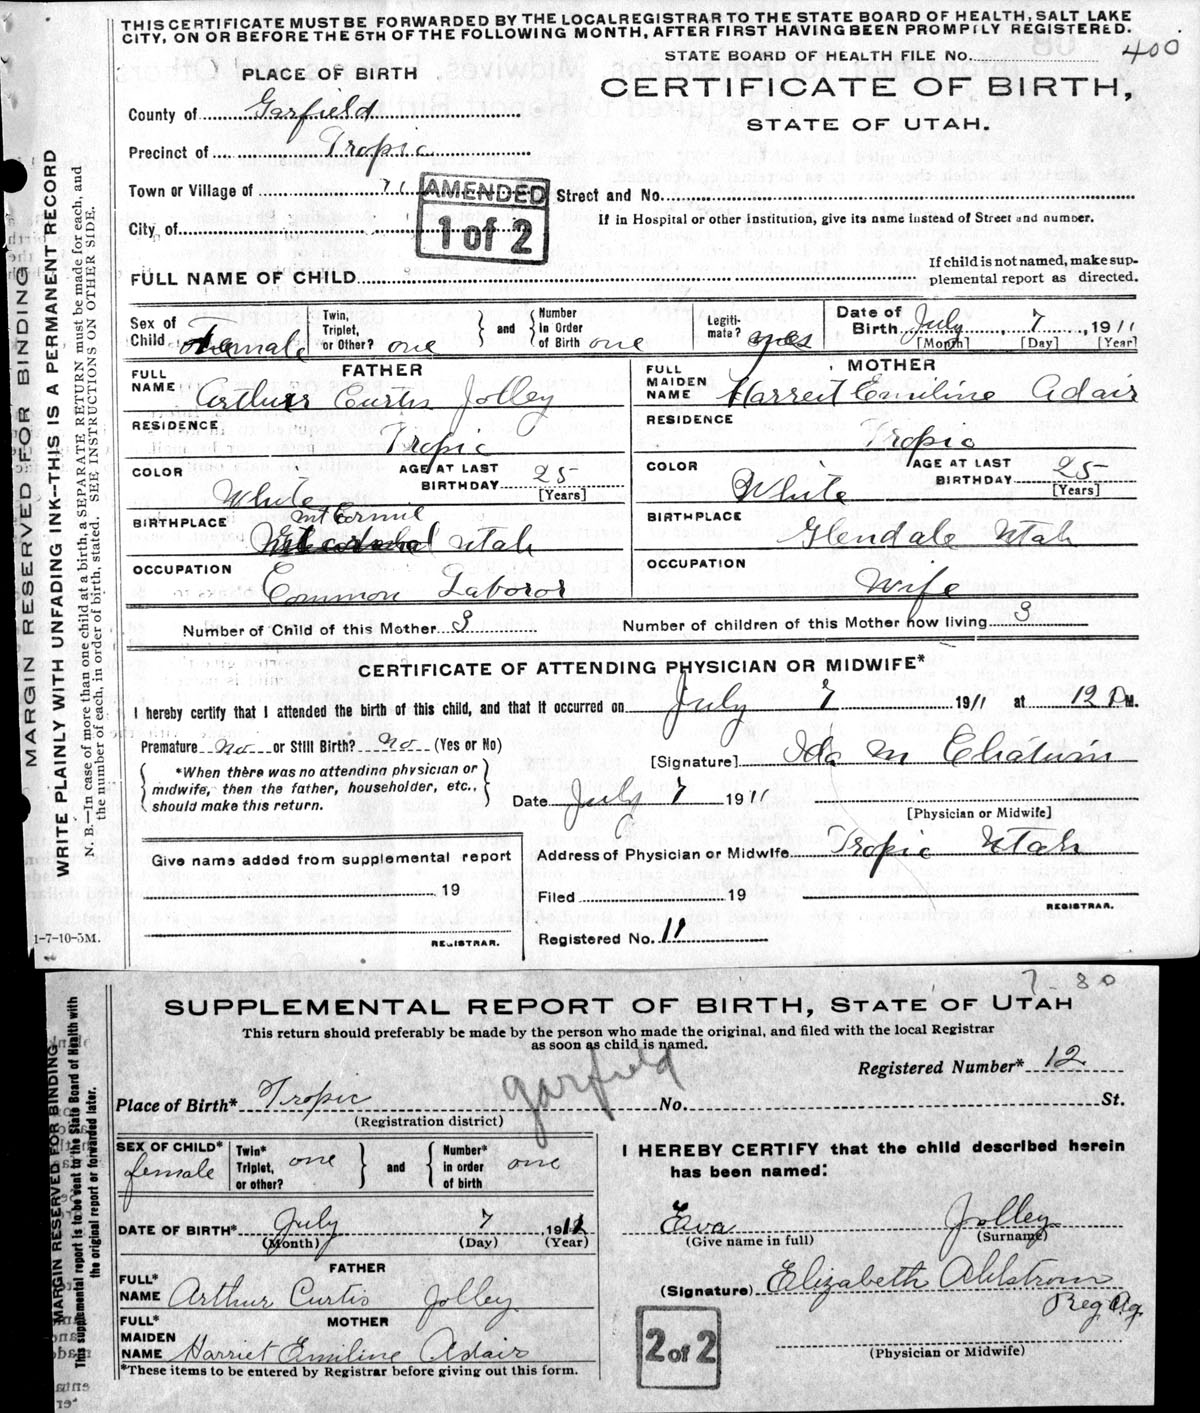 THIS CERTIFICATE MUST BE FORWARDED BY THE LOCAL REGISTRAR TO THE STATE BOARD OF HEALTH, SALT LAKE
CITY, ON OR BEFORE THE 5TH OF THE FOLLOWING MONTH, AFTER FIRST HAVING BEEN PROMPTLY REGISTERED.
STATE BOARD OF HEALTH FILE No. 400
PLACE OF BIRTH
CERTIFICATE OF BIRTH,
STATE OF UTAH.
County of Garfield
Precinct of Tropic
Town or Village of 
AMENDED
1 of 2
Street and No.
If in Hospital or other Institution, give its name instead of Street and number.
City of
FULL NAME OF CHILD
If child is not named, make sup-
plemental report as directed.
Sex of Child Female
Twin, Triplet, or Other? one
and
Number in Order of Birth one
Legiti-mate? yes
Date of Birth July 7, 1911
[Month] [Day] [Year]
FATHER
FULL NAME Arthur Curtis Jolley
MOTHER
FULL MAIDEN NAME Harreit Emiline Adair
RESIDENCE Tropic
RESIDENCE Tropic
COLOR White
AGE AT LAST BIRTHDAY 25 [Years]
COLOR White
AGE AT LAST BIRTHDAY 25 [Years]
BIRTHPLACE Mt Cormil Utah
BIRTHPLACE Glendale Utah
OCCUPATION Common Laboror
OCCUPATION Wife
Number of Child of this Mother 3
Number of children of this Mother now living 3
CERTIFICATE OF ATTENDING PHYSICIAN OR MIDWIFE*
I hereby certify that I attended the birth of this child, and that it occurred on July 7 1911 at 12 PM.
Premature no or Still Birth? no (Yes or No)
[Signature] Ida M Chatwin
*When there was no attending physician or
midwife, then the father, householder, etc.,
should make this return.
Date July 7 1911
[Physician or Midwife]
Give name added from supplemental report
Address of Physician or Midwife Tropic Utah
19
Filed 19
REGISTRAR.
REGISTRAR.
Registered No. 11
1-7-10-5M.
MARGIN RESERVED FOR BINDING
WRITE PLAINLY WITH UNFADING INK--THIS IS A PERMANENT RECORD
N. B.—In case of more than one child at a birth, a SEPARATE RETURN must be made for each, and
the number of each, in order of birth, stated. SEE INSTRUCTIONS ON OTHER SIDE.
7-80
SUPPLEMENTAL REPORT OF BIRTH, STATE OF UTAH
This return should preferably be made by the person who made the original, and filed with the local Registrar
as soon as child is named.
garfield
Registered Number* 12
Place of Birth* Tropic No. St.
(Registration district)
SEX OF CHILD* female
Twin* Triplet, or other? one
and
Number* in order of birth one
I HEREBY CERTIFY that the child described herein
has been named:
DATE OF BIRTH* July 7 1912
(Month) (Day) (Year)
Eava Jolley
(Give name in full) (Surname)
FATHER
FULL* NAME Arthur Curtis Jolley
(Signature) Elizabeth Ahlstrom
Reg Ag.
MOTHER
FULL* MAIDEN NAME Harriet Emiline Adair
2 of 2
(Physician or Midwife)
*These items to be entered by Registrar before giving out this form.
MARGIN RESERVED FOR BINDING
This supplemental report is to be sent to the State Board of Health with
the original report or forwarded later.